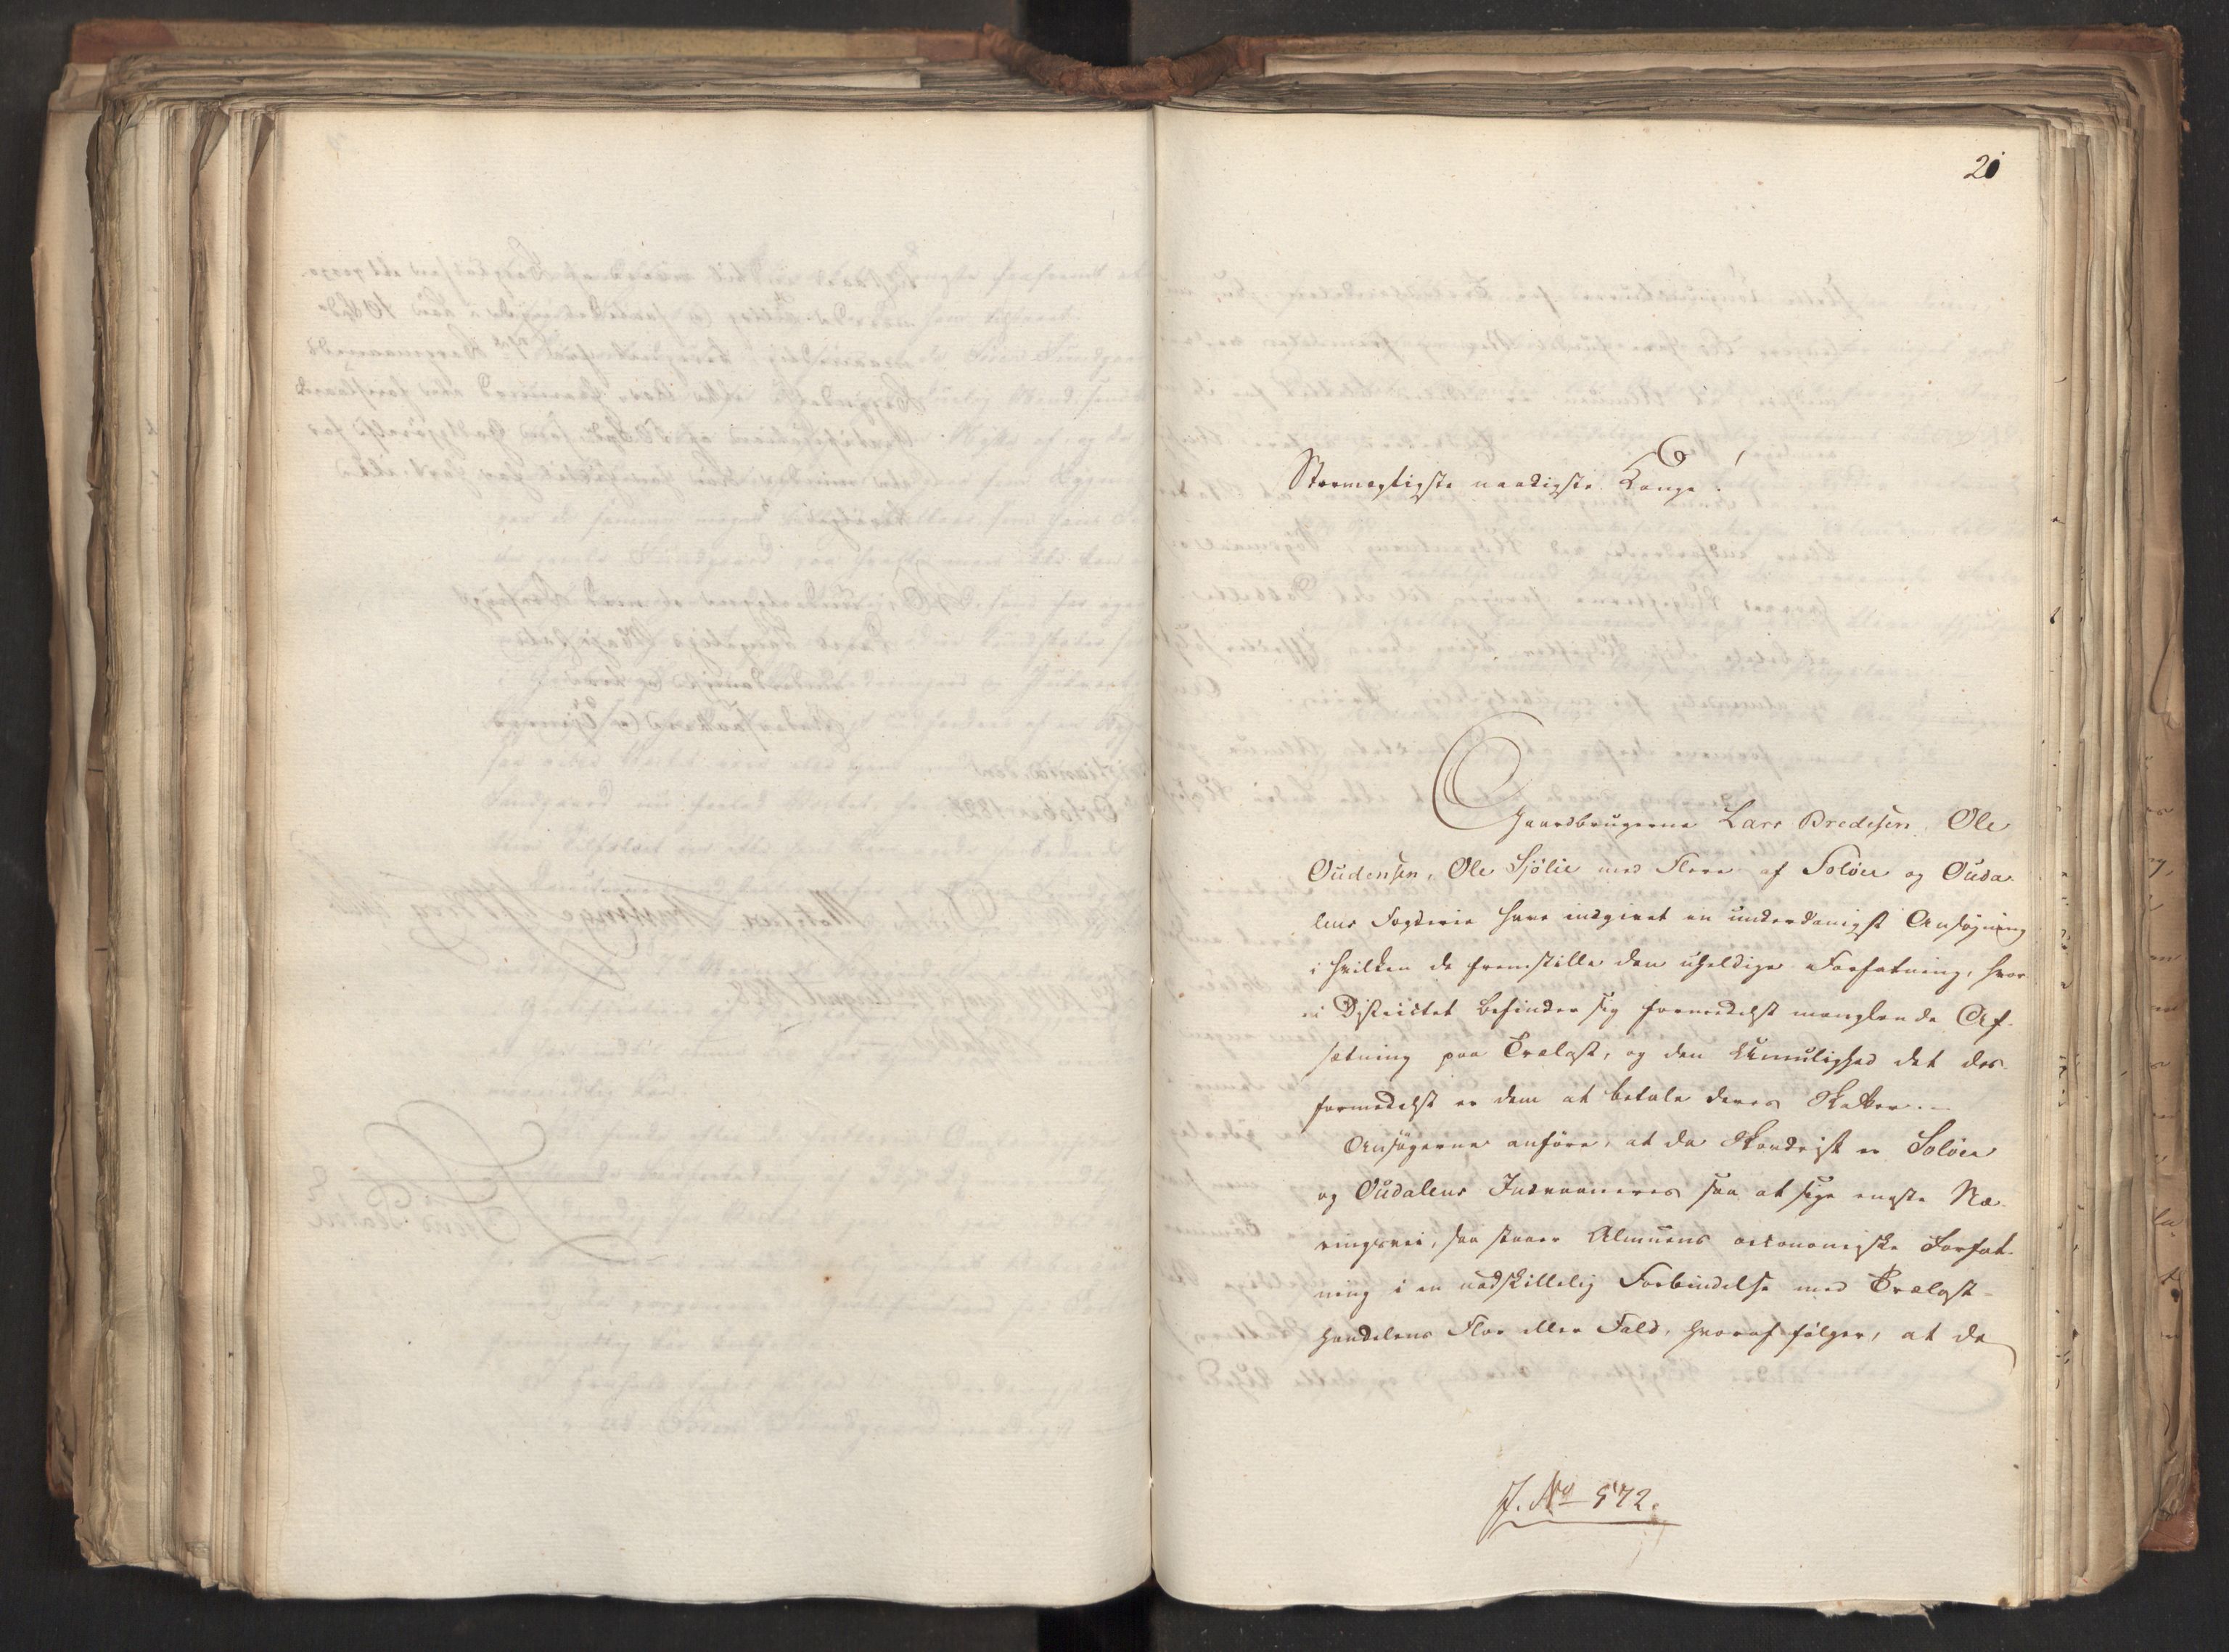 20
Stormægtigste naadigste Konge!
Gaardbrugerne Lars Bredesen, Ole
Oudensen, Ole Sjölie med Flere af Solöer og Ouda-
lens Fogderie have indgivet en underdanigst Ansøgning
i hvilken de fremstille den uheldige Forfatning, hvor
i Districtet befinder sig formedelst manglende Af-
sætning paa Trælast, og den Umulighed det des
formedelst er dem at betale deres Skatter.-
Ansøgerne anføre, at da Skovdrift er Solöer
og Oudalens Indvaaneres saa at sige eneste Næ-
ringsvei, saa staaer Almuens oeconomiske Forfat-
ning i en uadskillelig Forbindelse med Trælast-
handelens Flor eller Fald, hvoraf følger, at da
J. No 572.